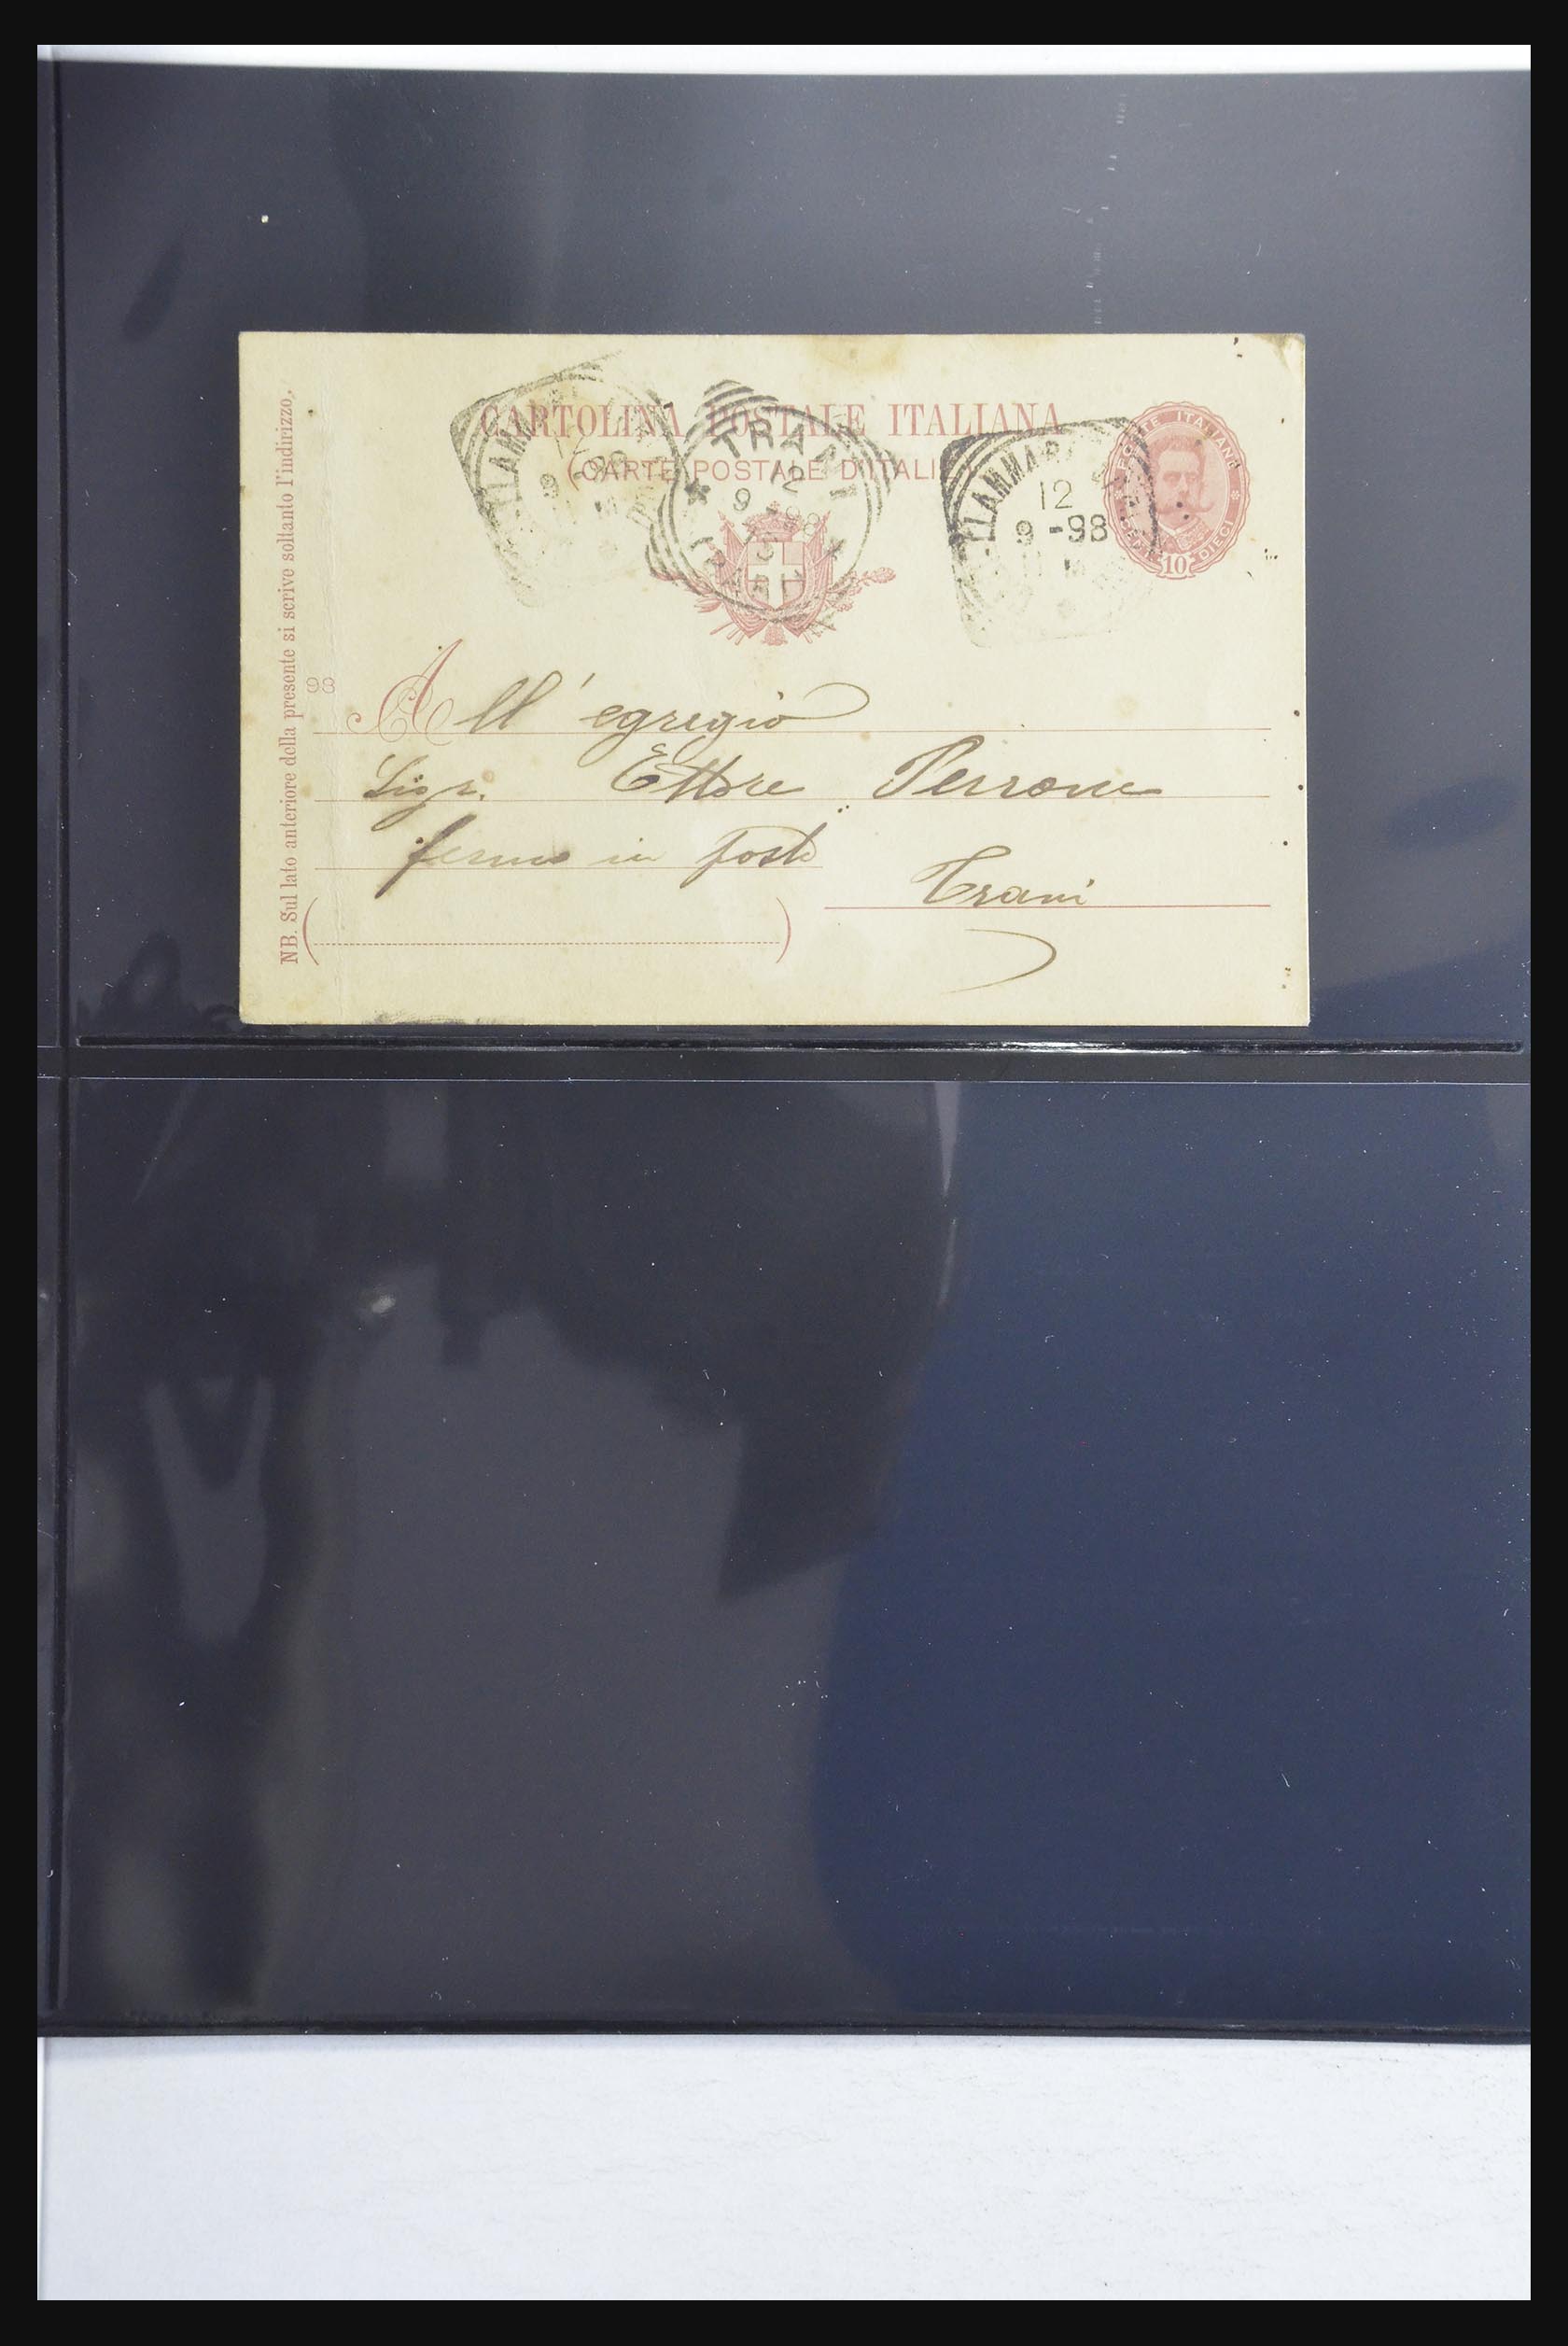 CARTOLINA POSTALE ITALIANA
(CARTE POSTALE D'ITALI
POSTE ITALIANE
DIECI
10
12
9 -98
TRANI
12
9 -98
BARI
9 -98
NB. Sul lato anteriore della presente si scrive soltanto l'indirizzo.
98
All' egregio
Sigr. Ettore Perrone
fermo in posta
Trani